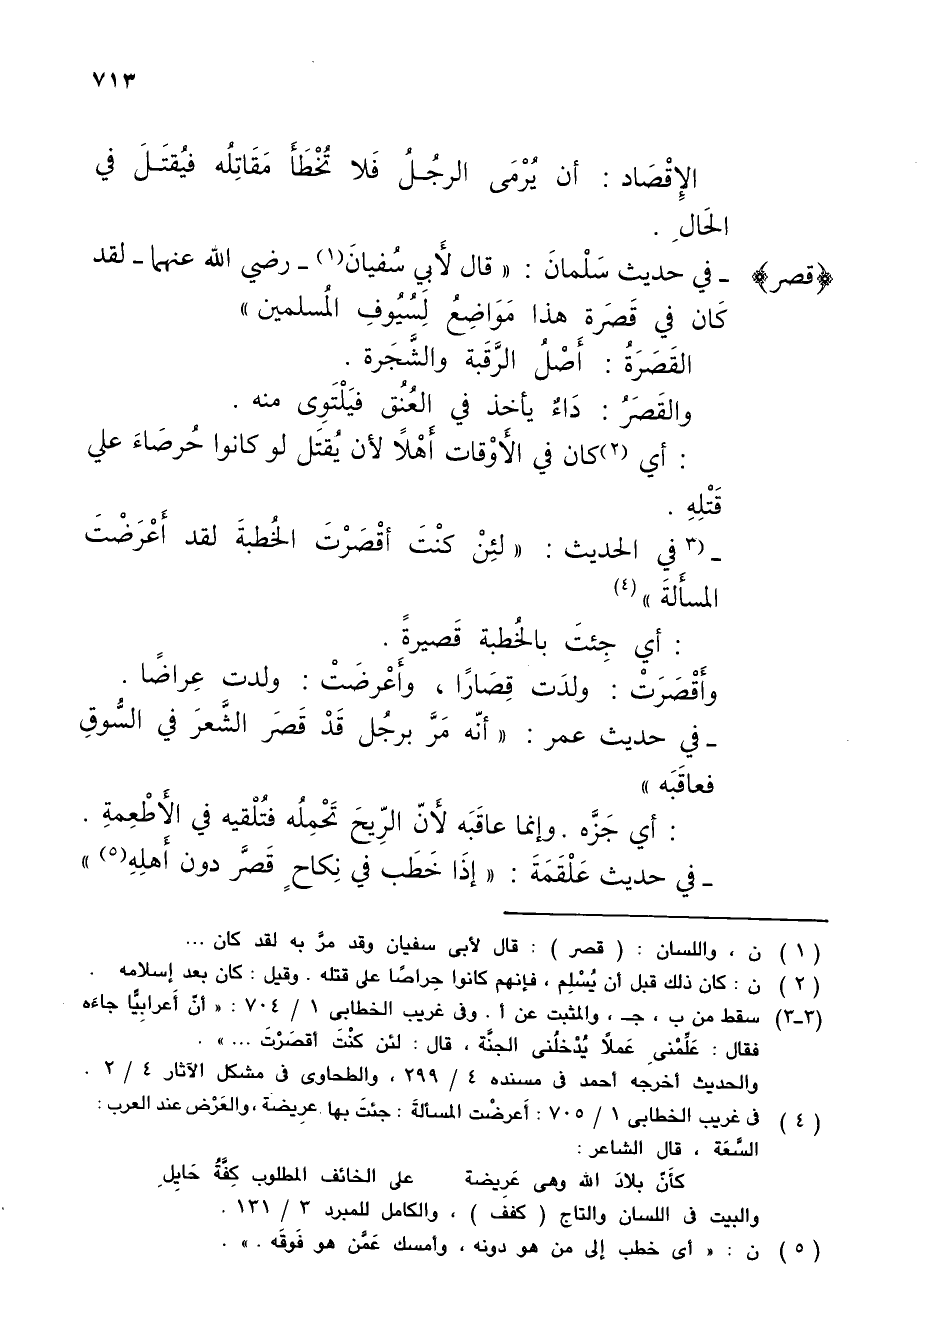 ٧١٣
الإِقْصَاد : أن يُرْمَى الرجُلُ فَلا تُخْطَأَ مَقَاتِلُه فيُقتَلَ في
الحَالِ .
﴿قصر﴾ ـ في حديث سَلْمانَ : « قال لأَبي سُفيانَ(١) ـ رضي الله عنهما ـ لقد
كَان في قَصَرَة هذا مَوَاضِعُ لِسُيُوفِ المُسلمين »
القَصَرَةُ : أَصْلُ الرَّقَبة والشَّجَرة .
والقَصَرُ : دَاءٌ يأخذ في العُنُق فيَلْتَوِى منه .
: أي (٢)كان في الأَوْقات أَهْلًا لأن يُقتَل لو كانوا حُرصَاءَ علي
قَتْلِهِ .
ـ (٣ في الحديث : « لئِنْ كنْتَ أقْصَرْتَ الخُطبةَ لقد أَعْرَضْتَ
المسأَلةَ »(٤)
: أي جِئتَ بالخُطبة قَصيرةً .
وأَقْصَرَتْ : ولدَت قِصَارًا ، وأَعْرضَتْ : ولدت عِراضًا .
ـ في حديث عمر : « أنّه مَرَّ برجُل قَدْ قَصَرَ الشَّعرَ في السُّوقِ
فعاقَبَه »
: أي جَزَّه . وإنما عاقَبَه لأَنّ الرِّيحَ تَحْمِلُه فتُلْقيه في الأَطْعِمةِ .
ـ في حديث عَلْقَمَةَ : « إذَا خَطَب في نِكاحٍ قَصَّرَ دون أَهلِهِ(٥) »
(١) ن ، واللسان : ( قصر ) : قال لأبى سفيان وقد مرَّ به لقد كان ...
(٢) ن : كان ذلك قبل أن يُسْلِم ، فإنهم كانوا حِراصًا على قتله . وقيل : كان بعد إسلامه .
(٣ـ٣) سقط من ب ، جـ ، والمثبت عن أ . وفى غريب الخطابى ١ / ٧٠٤ : « أنّ أَعرابيًّا جاءَه
فقال : عَلِّمْنى عَملًا يُدْخلُنى الجنَّة ، قال : لئن كنْتَ أقصَرْتَ ... » .
والحديث أخرجه أحمد فى مسنده ٤ / ٢٩٩ ، والطحاوى فى مشكل الآثار ٤ / ٢ .
(٤) فى غريب الخطابى ١ / ٧٠٥ : أَعرضْت المسألةَ : جئتَ بها عريضة ، والعَرْض عند العرب :
السَّعَة ، قال الشاعر :
كأنّ بلادَ الله وهى عَرِيضة على الخائف المطلوب كِفَّةُ حَابِلِ
والبيت فى اللسان والتاج ( كفف ) ، والكامل للمبرد ٣ / ١٣١ .
(٥) ن : « أى خطب إلى من هو دونه ، وأمسك عَمَّن هو فَوقَه . » .